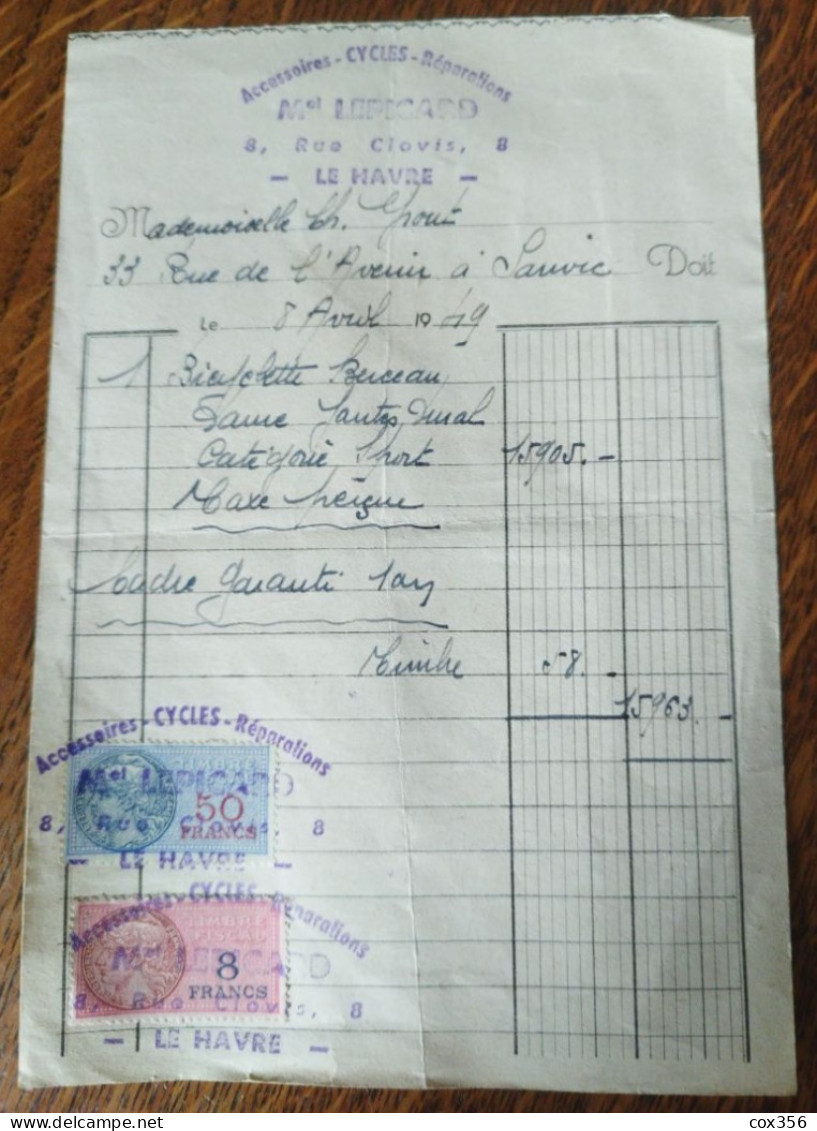 Accessoires - CYCLES - Réparations
Mel LEPICARD
8, Rue Clovis, 8
- LE HAVRE -
Mademoiselle Ch.
33 Rue de l'Avenir à Sanvic Doit
Le 8 Avril 1949
1 Bicyclette Berceau
Dame
Catégorie Sport 15905.-
Taxe
Cadre garanti 1 an
Timbre 58.-
15963.-
Accessoires - CYCLES - Réparations
TIMBRE
Mel LEPICARD
50
FRANCS
8, Rue Clovis, 8
- LE HAVRE -
Accessoires - CYCLES - Réparations
TIMBRE
FISCAL
Mel LEPICARD
8
FRANCS
8, Rue Clovis, 8
- LE HAVRE -
cox356